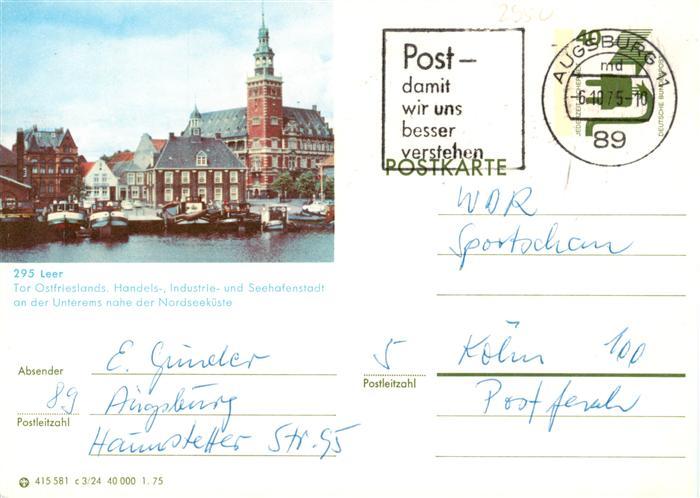 2950
Post–
damit
wir uns
besser
verstehen
40
AUGSBURG 1
md
-6.10.75-10
89
JEDERZEIT SICHERHEIT
DEUTSCHE BUNDESPOST
POSTKARTE
WDR
Sportschau
295 Leer
Tor Ostfrieslands. Handels-, Industrie- und Seehafenstadt
an der Unterems nahe der Nordseeküste
5 Köln 100
Postleitzahl
Postfach
Absender E. Günder
89 Augsburg
Postleitzahl
Haunstetter Str. 95
415 581 c 3/24 40 000 1. 75